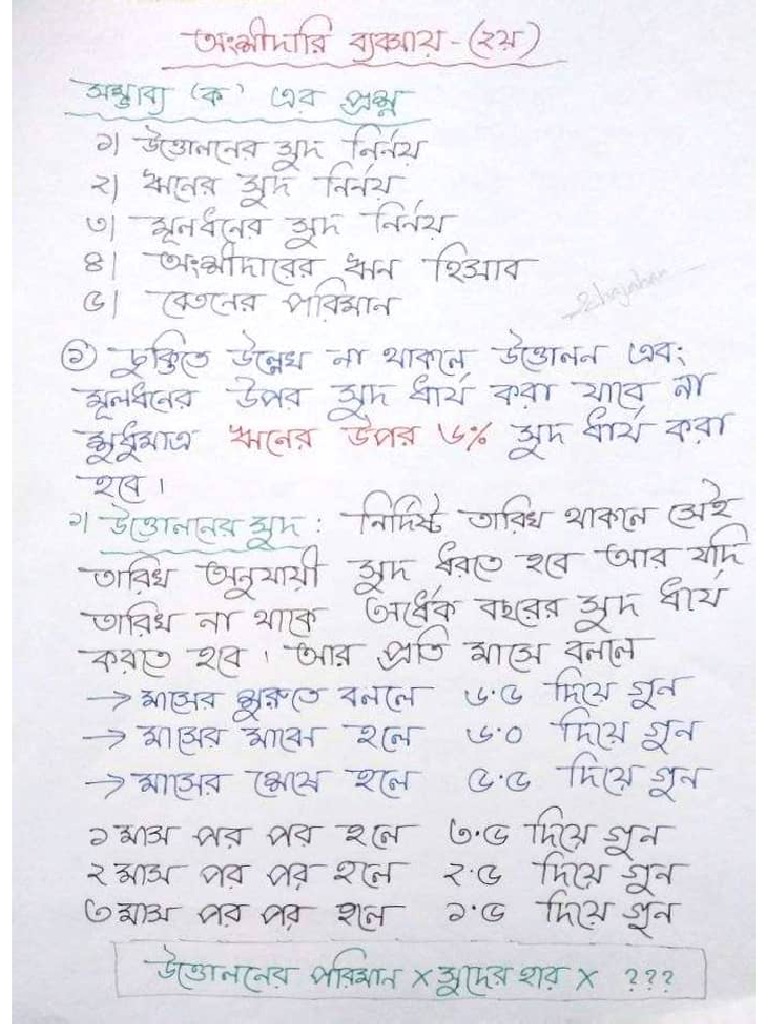 অংশীদারি ব্যবসায় - (২য়)
সম্ভাব্য 'ক' এর প্রশ্ন
১) উত্তোলনের সুদ নির্নয়
২) ঋনের সুদ নির্নয়
৩) মূলধনের সুদ নির্নয়
৪) অংশীদারের ঋন হিসাব
৫) বেতনের পরিমান
Shajahan
① চুক্তিতে উল্লেখ না থাকলে উত্তোলন এবং
মূলধনের উপর সুদ ধার্য করা যাবে না
শুধুমাত্র ঋনের উপর ৬% সুদ ধার্য করা
হবে।
১) উত্তোলনের সুদ: নির্দিষ্ট তারিখ থাকলে সেই
তারিখ অনুযায়ী সুদ ধরতে হবে আর যদি
তারিখ না থাকে অর্ধেক বছরের সুদ ধার্য
করতে হবে। আর প্রতি মাসে বললে
→ মাসের শুরুতে বললে ৬.৫ দিয়ে গুন
→ মাসের মাঝে হলে ৬.০ দিয়ে গুন
→ মাসের শেষে হলে ৫.৫ দিয়ে গুন
১ মাস পর পর হলে ৩.৫ দিয়ে গুন
২ মাস পর পর হলে ২.৫ দিয়ে গুন
৩ মাস পর পর হলে ১.৫ দিয়ে গুন
উত্তোলনের পরিমান × সুদের হার × ???